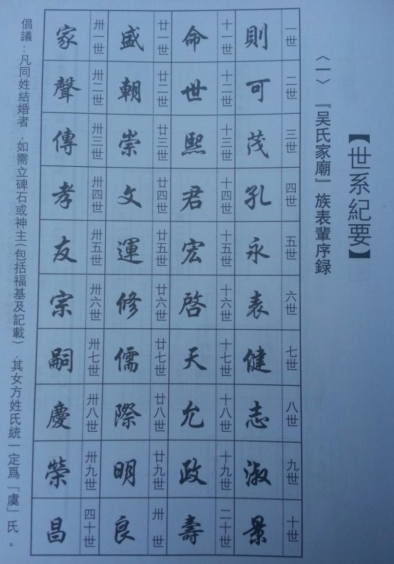 【世系紀要】
〈一〉『吴氏家廟』族表輩序録
一世 二世 三世 四世 五世 六世 七世 八世 九世 十世
則 可 茂 孔 永 表 健 志 淑 景
十一世 十二世 十三世 十四世 十五世 十六世 十七世 十八世 十九世 二十世
命 世 熙 君 宏 啓 天 允 政 壽
廿一世 廿二世 廿三世 廿四世 廿五世 廿六世 廿七世 廿八世 廿九世 卅世
盛 朝 崇 文 運 修 儒 際 明 良
卅一世 卅二世 卅三世 卅四世 卅五世 卅六世 卅七世 卅八世 卅九世 四十世
家 聲 傳 孝 友 宗 嗣 慶 榮 昌
倡議：凡同姓結婚者，如需立碑石或神主（包括福基及記載），其女方姓氏統一定爲「虞」氏。